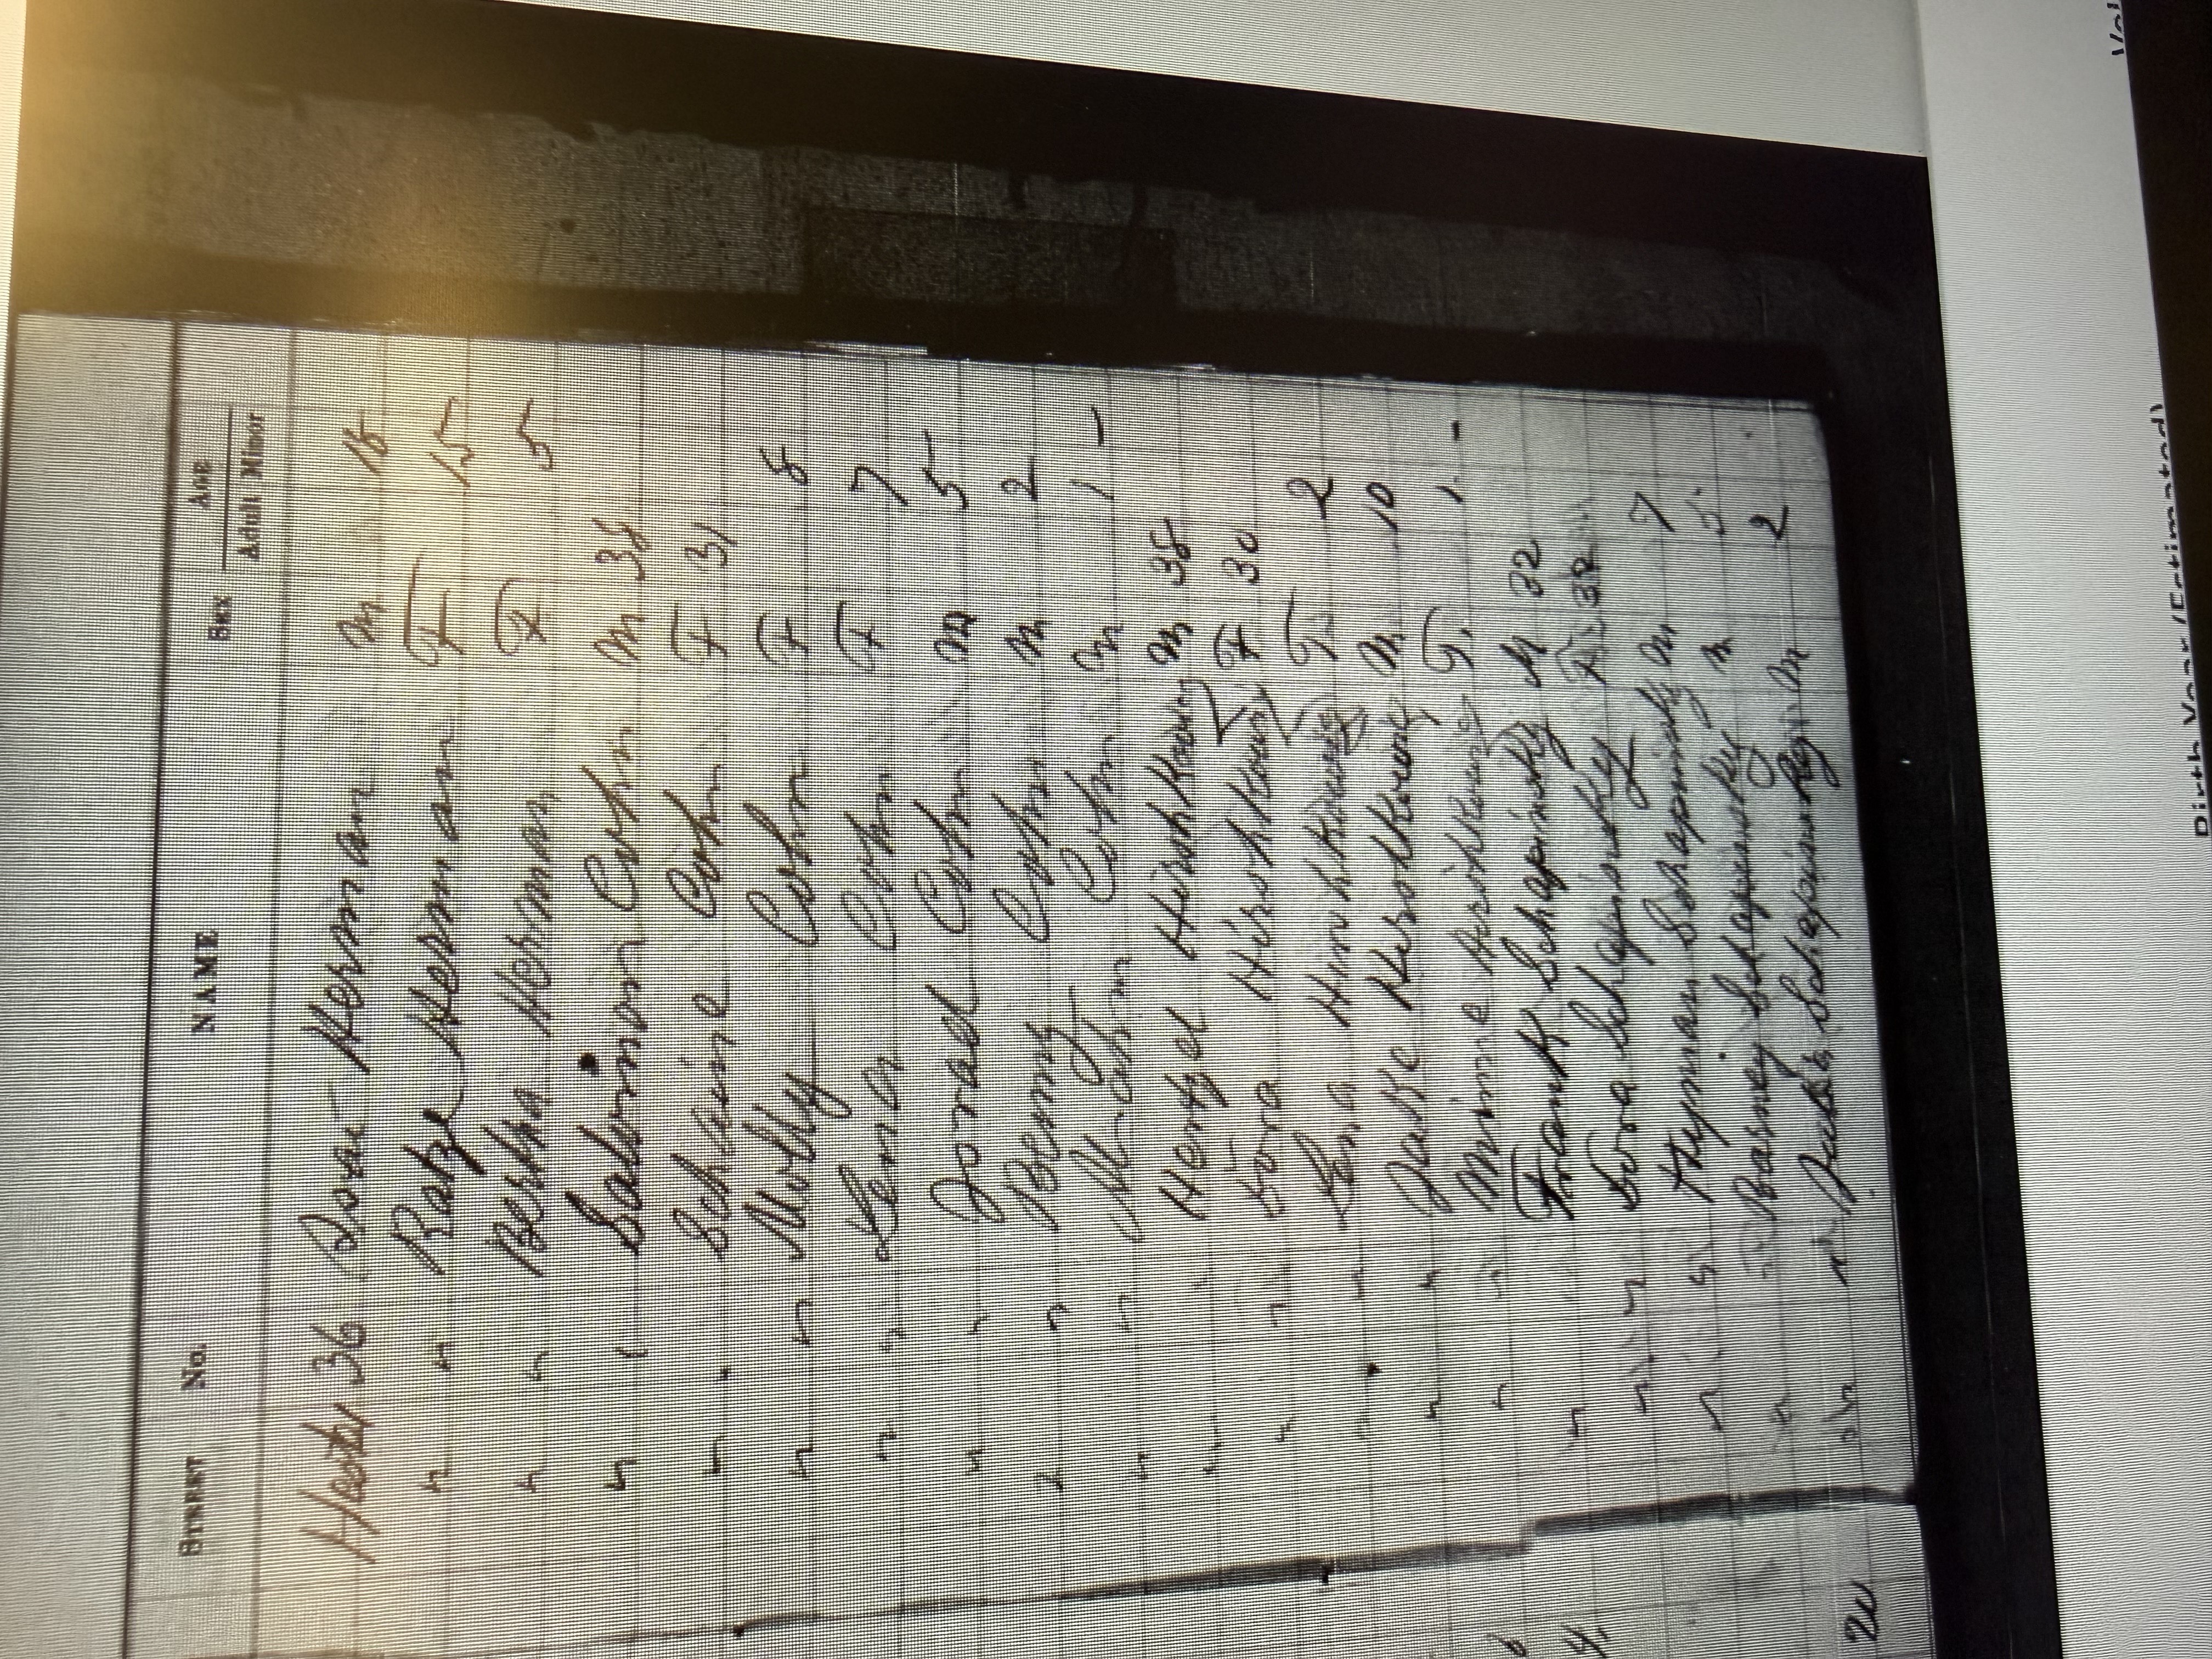 STREET No. NAME SEX AGE
Adult Minor
36 Herman M 18
" " Herman F 15
" " Bertha Herman F 5
" " Salomon Cohn M 38
" " Cohn F 31
" " Molly Cohn F 8
" " Lena Cohn F 7
" " Cohn M 5
" " Benny Cohn M 2
" " Cohn M 1 -
" Hirshkowiz M 38
" " Dora Hirshkowiz F 30
" Lena Hirshkowiz F. 2
" " Jake Hirshkowiz M 10
" " Minnie Hirshkowiz F. 1. -
" Frank Schapinsky M 32
" " Dora Schapinsky F.
" " Hyman Schapinsky M 7
" " Barney Schapinsky M 5
" " Schapinsky M 2
Birth Year (Estimated)